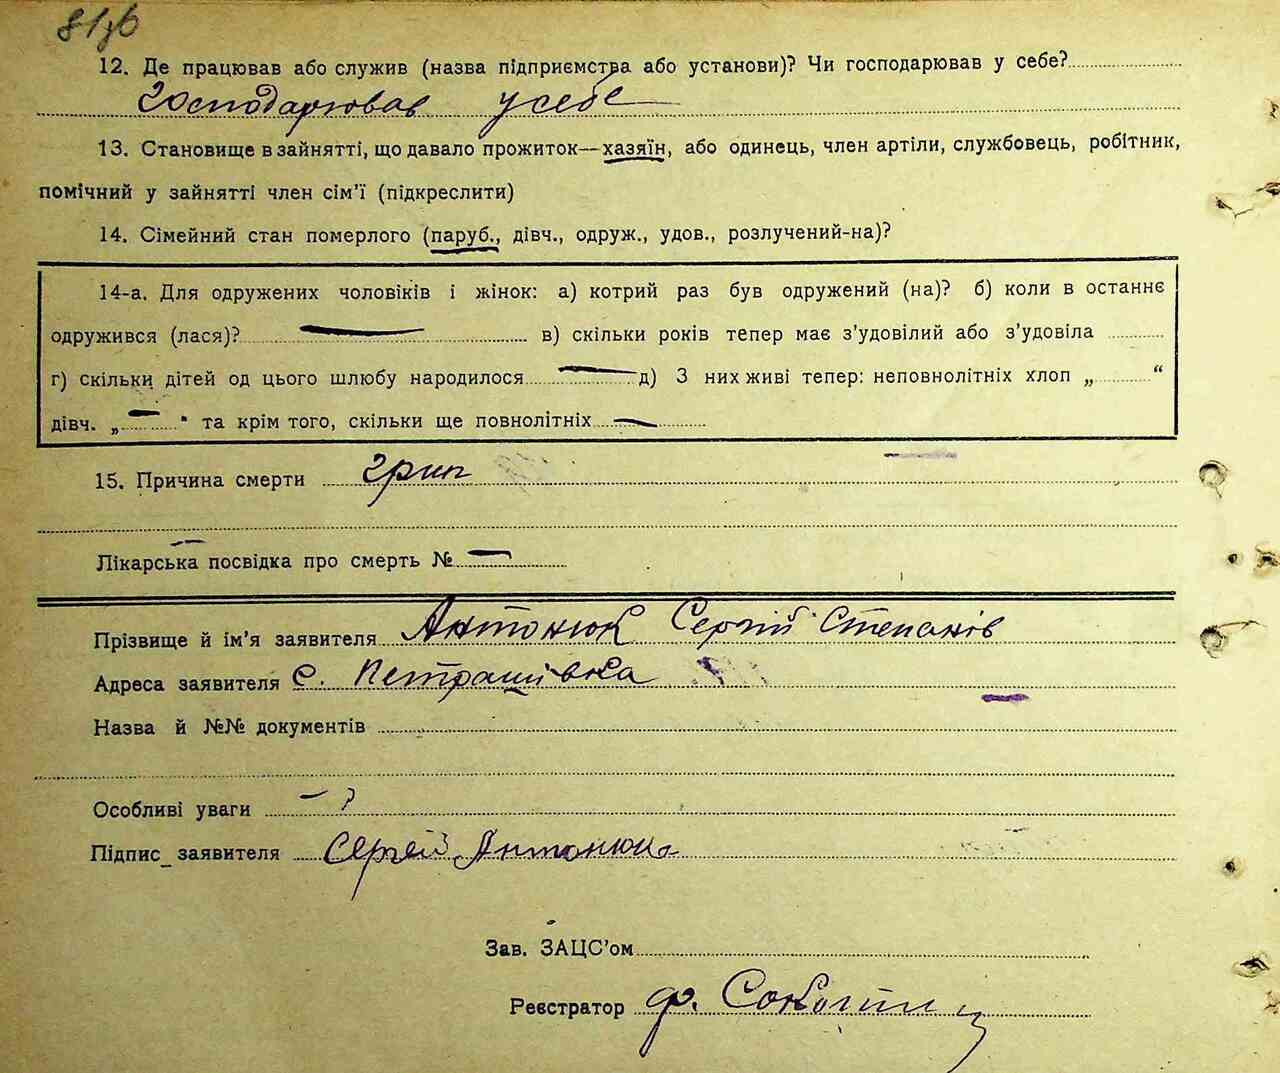 12. Де працював або служив (назва підприємства або установи)? Чи господарював у себе?
господарював у себе
13. Становище в зайнятті, що давало прожиток—хазяїн, або одинець, член артіли, службовець, робітник,
помічний у зайнятті член сім'ї (підкреслити)
14. Сімейний стан померлого (паруб., дівч., одруж., удов., розлучений-на)?
14-а. Для одружених чоловіків і жінок: а) котрий раз був одружений (на)? б) коли в останнє
одружився (лася)? — в) скільки років тепер має з'удовілий або з'удовіла
г) скільки дітей од цього шлюбу народилося — д) З них живі тепер: неповнолітніх хлоп „ “
дівч. „ — " та крім того, скільки ще повнолітніх —
15. Причина смерти грип
Лікарська посвідка про смерть № —
Прізвище й ім'я заявителя Антонюк Сергій Степанів
Адреса заявителя с. Петрашівка
Назва й №№ документів
Особливі уваги — ?
Підпис заявителя Сергей Антонюк
Зав. ЗАЦС'ом
Реєстратор ф.